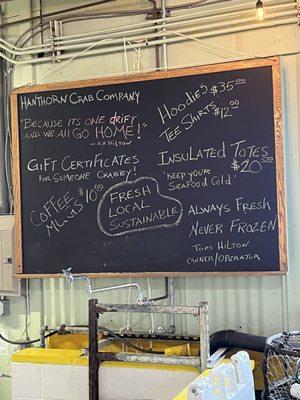 Hanthorn Crab Company
"Because its one drift
and we all go home!"
- A.K. Hilton
Gift Certificates
for someone crabby!
Coffee $10.00
Mugs
Fresh
Local
Sustainable
Hoodies $35.00
Tee Shirts $12.00
Insulated Totes
'Keep your $20.00
Seafood Cold'
Always Fresh
Never Frozen
Tom Hilton
owner/operator